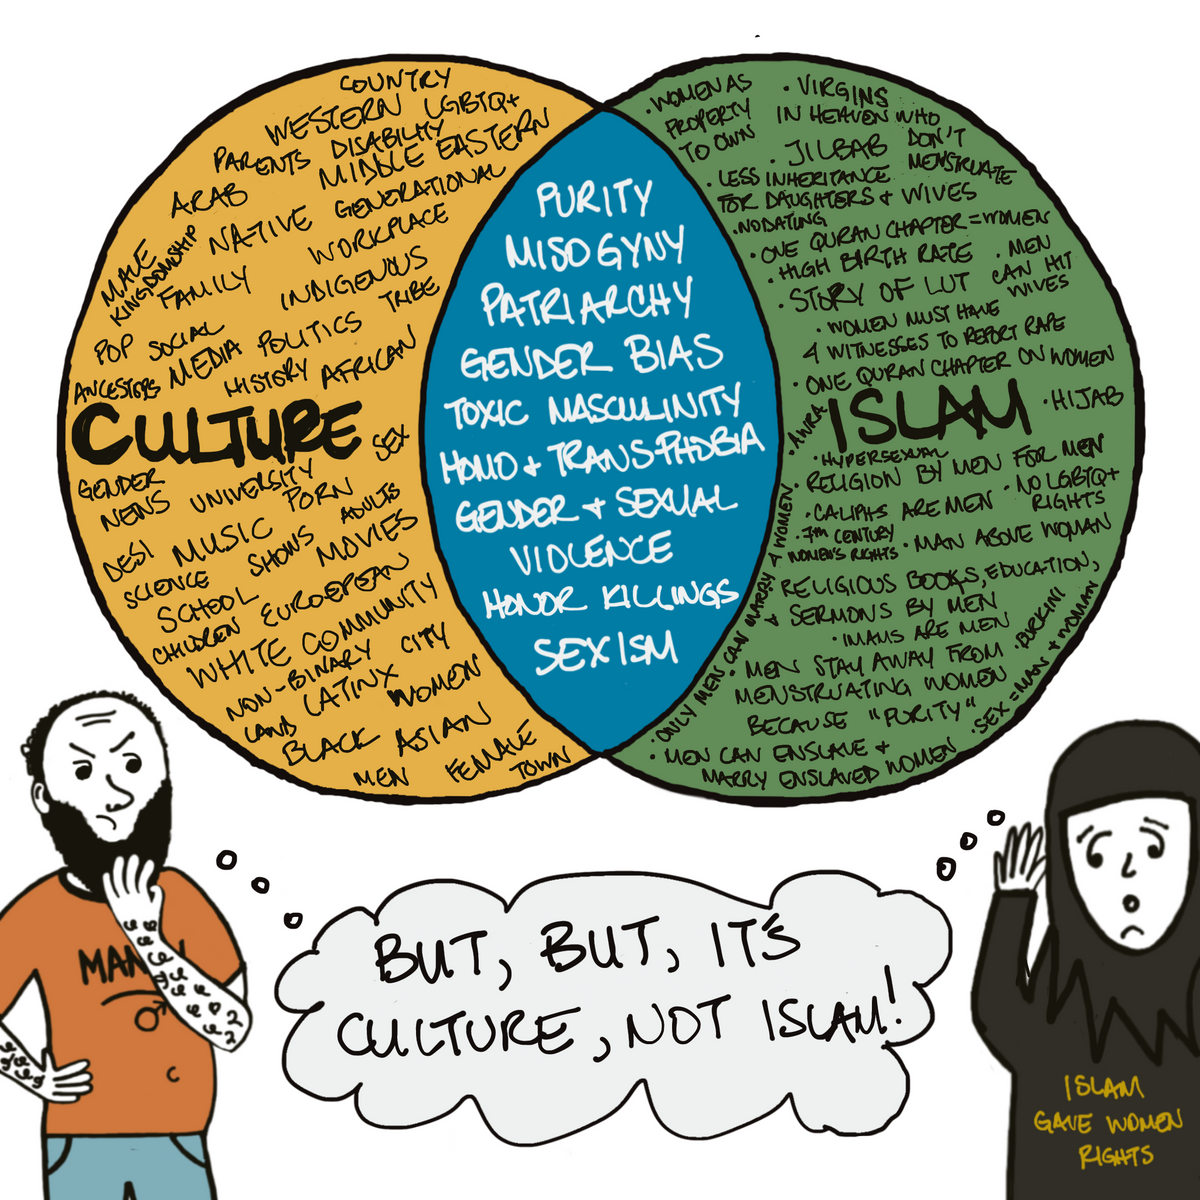 COUNTRY
WESTERN LGBTQ+
PARENTS DISABILITY
MIDDLE EASTERN
ARAB
NATIVE GENERATIONAL
MALE
KINGDOMSHIP
FAMILY
WORKPLACE
INDIGENOUS
POP SOCIAL
MEDIA POLITICS TRIBE
ANCESTORS
HISTORY AFRICAN
CULTURE
SEX
GENDER
NEWS UNIVERSITY
PORN
DESI MUSIC ADULTS
SCIENCE SHOWS MOVIES
SCHOOL
CHILDREN EUROEPEAN
WHITE COMMUNITY
NON-BINARY CITY
LAND LATINX WOMEN
BLACK ASIAN
MEN FEMALE
TOWN
PURITY
MISOGYNY
PATRIARCHY
GENDER BIAS
TOXIC MASCULINITY
HOMO + TRANSPHOBIA
GENDER + SEXUAL
VIOLENCE
HONOR KILLINGS
SEXISM
• WOMEN AS
PROPERTY
TO OWN
• VIRGINS
IN HEAVEN WHO
DON'T
MENSTRUATE
• JILBAB
• LESS INHERITANCE
FOR DAUGHTERS + WIVES
• NO DATING
• ONE QURAN CHAPTER = WOMEN
• HIGH BIRTH RATE
• MEN
CAN HIT
WIVES
• STORY OF LUT
• WOMEN MUST HAVE
4 WITNESSES TO REPORT RAPE
• ONE QURAN CHAPTER ON WOMEN
• AWRA
ISLAM
• HIJAB
• HYPERSEXUAL
• RELIGION BY MEN FOR MEN
• CALIPHS ARE MEN
• NO LGBTQ+
RIGHTS
• 7TH CENTURY
WOMEN'S RIGHTS
• MAN ABOVE WOMAN
• RELIGIOUS BOOKS, EDUCATION,
+ SERMONS BY MEN
• IMAMS ARE MEN
• BURKINI
• MEN STAY AWAY FROM
MENSTRUATING WOMEN
BECAUSE "PURITY"
• SEX = MAN + WOMAN
• ONLY MEN CAN MARRY 4 WOMEN
• MEN CAN ENSLAVE +
MARRY ENSLAVED WOMEN
BUT, BUT, IT'S
CULTURE, NOT ISLAM!
MAN
ISLAM
GAVE WOMEN
RIGHTS